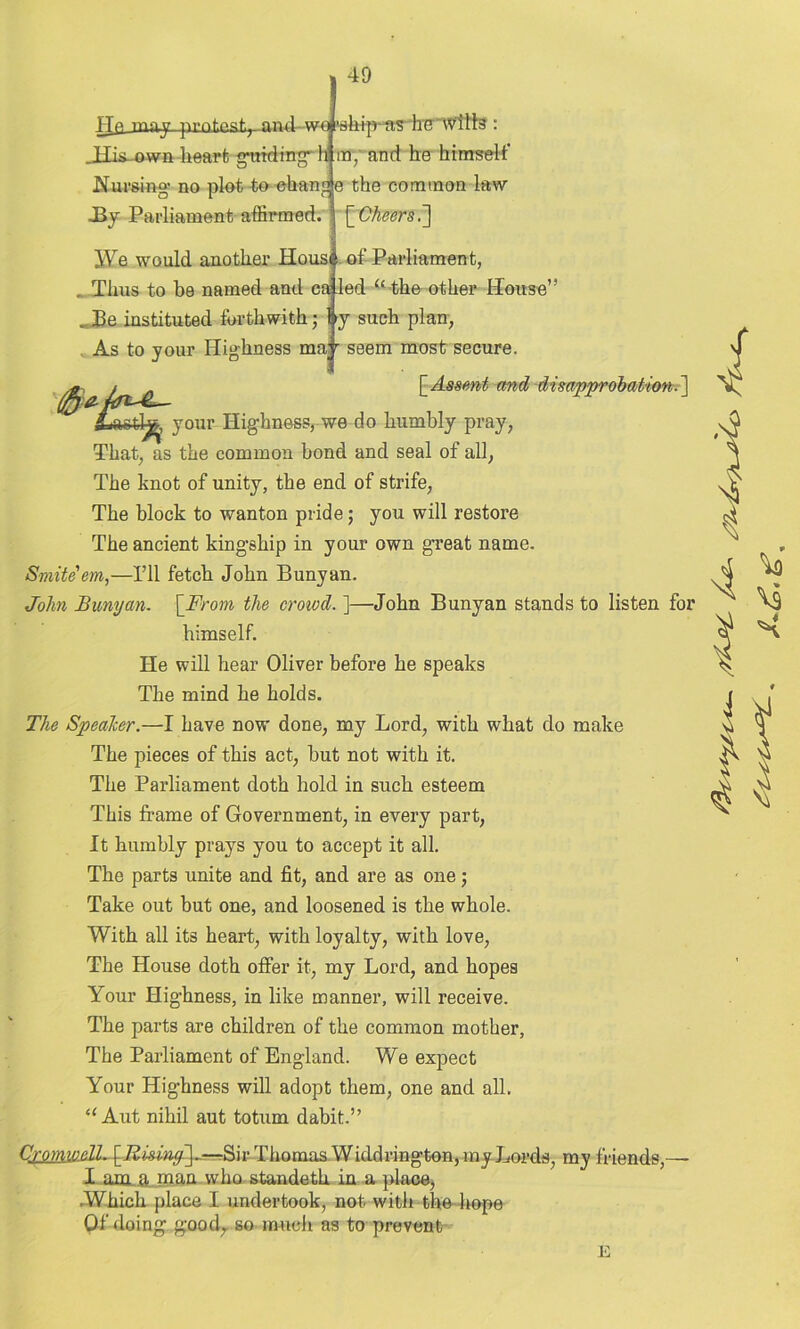 49
He may protest, and worship as he wills :
His own heart guiding him, and he himself
Nursing no plot to change the common law
By Parliament affirmed. [Cheers.]
We would another House of Parliament,
Thus to be named and called “ the other House”
Be instituted forthwith ; by such plan,
As to your Highness may seem most secure.
[Assent and disapprobation.]
Lastly, your Highness, we do humbly pray,
That, as the common bond and seal of all,
The knot of unity, the end of strife,
The block to wanton pride ; you will restore
The ancient kingship in your own great name.
Smite'em,—I’ll fetch John Bunyan.
John Bunyan. [From the crowd. ]—John Bunyan stands to listen for
himself.
He will hear Oliver before he speaks
The mind he holds.
The Speaker.—I have now done, my Lord, with what do make
The pieces of this act, but not with it.
The Parliament doth hold in such esteem
This frame of Government, in every part,
It humbly prays you to accept it all.
The parts unite and fit, and are as one ;
Take out but one, and loosened is the whole.
With all its heart, with loyalty, with love,
The House doth offer it, my Lord, and hopes
Your Highness, in like manner, will receive.
The parts are children of the common mother,
The Parliament of England. We expect
Your Highness will adopt them, one and all.
“ Aut nihil aut totum dabit.”
Cromwell. [Rising].—Sir Thomas Widdrington, my Lords, my friends,—
I am a man who standeth in a place,
Which place I undertook, not with the hope
Of doing good, so much as to prevent
E
Bunyan may be